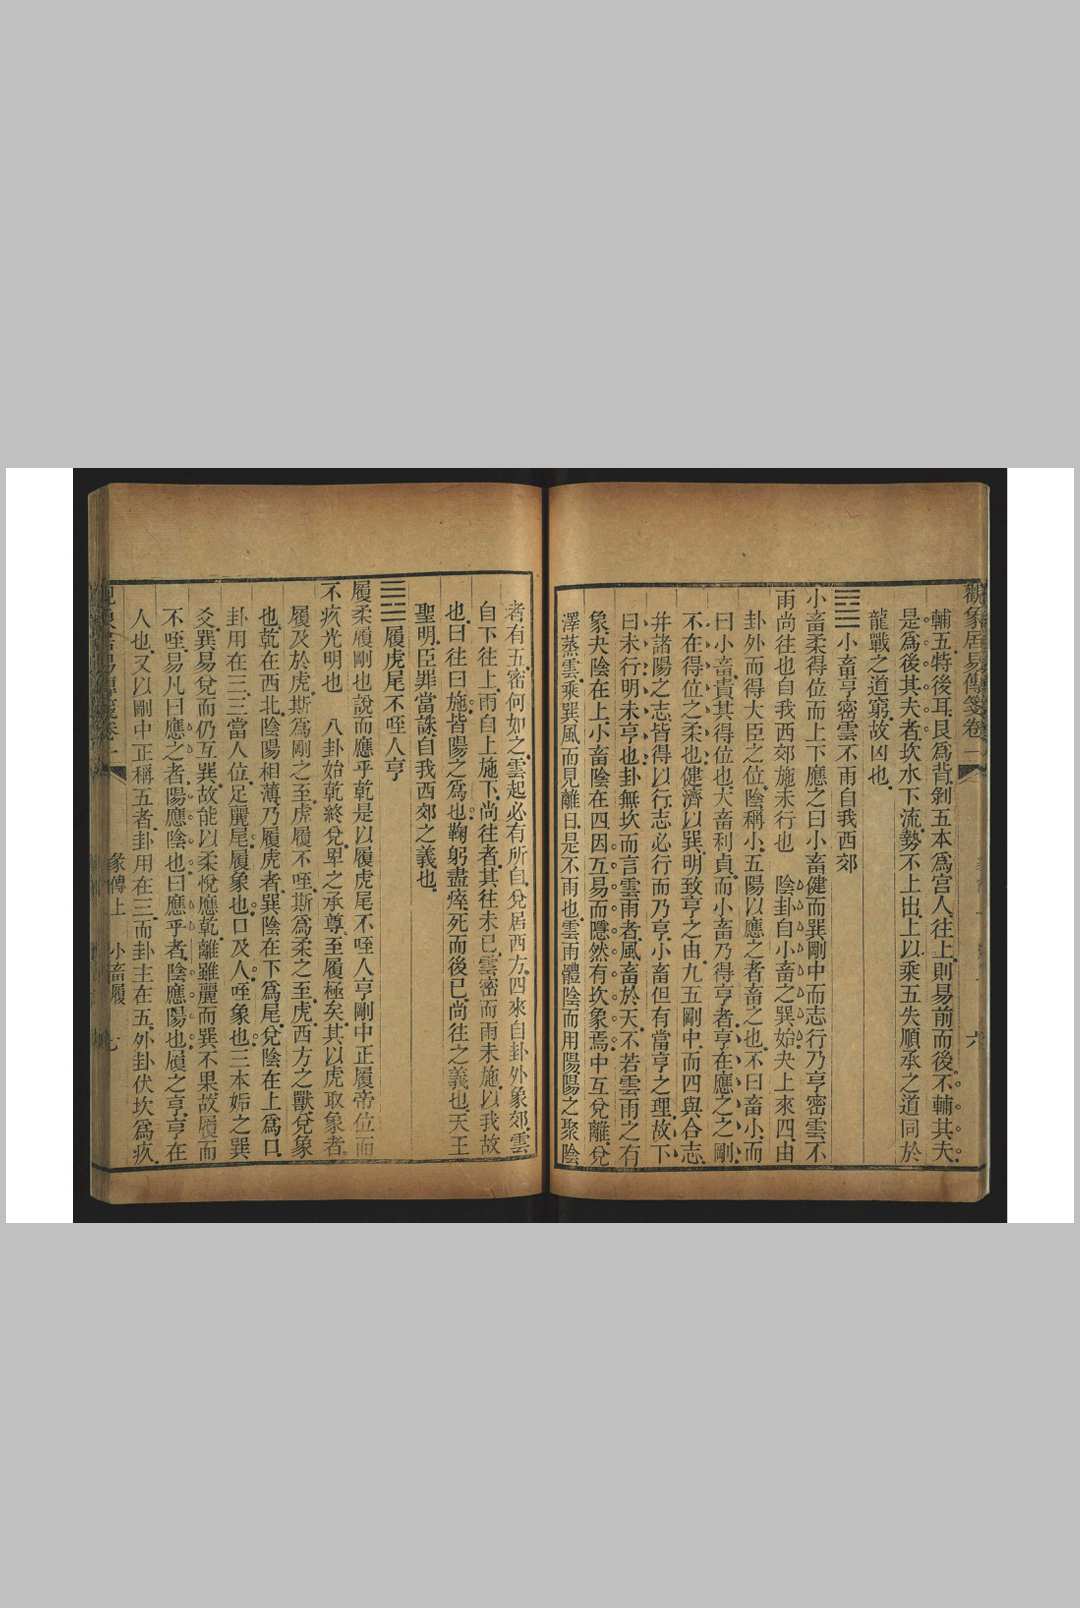 觀象居易傳箋卷一
輔五特後耳艮為背剝五本為宮人往上則易前而後不輔其夫
是為後其夫者坎水下流勢不上出上以乘五失順承之道同於
龍戰之道窮故凶也
小畜亨密雲不雨自我西郊
小畜柔得位而上下應之曰小畜健而巽剛中而志行乃亨密雲不
雨尚往也自我西郊施未行也 陰卦自小畜之巽始夬上來四由
卦外而得大臣之位陰稱小五陽以應之者畜之也不曰畜小而
曰小畜貴其得位也大畜利貞而小畜乃得亨者亨在應之之剛
不在得位之柔也健濟以巽明致亨之由九五剛中而四與合志
并諸陽之志皆得以行志必行而乃亨小畜但有當亨之理故下
曰未行明未亨也卦無坎而言雲雨者風畜於天不若雲雨之有
象夬陰在上小畜陰在四因互易而隱然有坎象焉中互兌離兌
澤蒸雲乘巽風而見離日是不雨也雲雨體陰而用陽陽之聚陰
六
者有五密何如之雲起必有所自兌居西方四來自卦外象郊雲
自下往上雨自上施下尚往者其往未已雲密而雨未施以我故
也曰往曰施皆陽之為也鞠躬盡瘁死而後已尚往之義也天王
聖明臣罪當誅自我西郊之義也
履虎尾不咥人亨
履柔履剛也說而應乎乾是以履虎尾不咥人亨剛中正履帝位而
不疚光明也 八卦始乾終兌卑之承尊至履極矣其以虎取象者
履及於虎斯為剛之至虎履不咥斯為柔之至虎西方之獸兌象
也乾在西北陰陽相薄乃履虎者巽陰在下為尾兌陰在上為口
卦用在三三當人位足躔尾履象也口及人咥象也三本姤之巽
爻巽易兌而仍互巽故能以柔悅應乾離雖麗而巽不果故履而
不咥易凡曰應之者陽應陰也曰應乎者陰應陽也履之亨亨在
人也又以剛中正稱五者卦用在三而卦主在五外卦伏坎為疚
彖傳上 小畜履
七